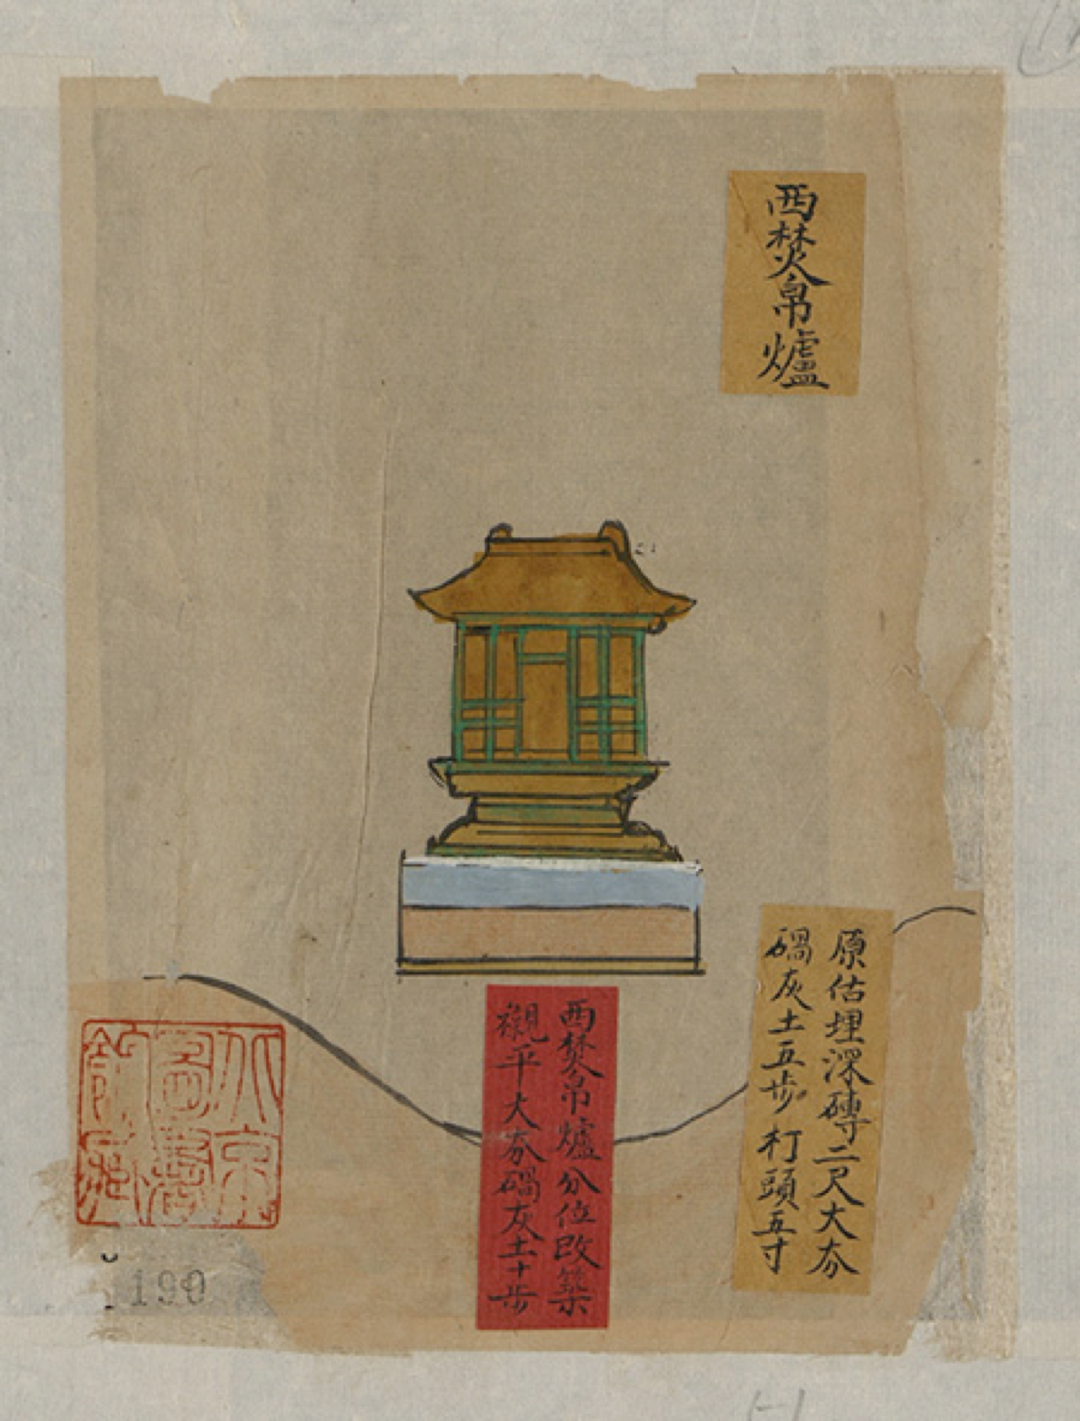 西焚帛爐
原估埋深磚二尺大夯
碢灰土五步朾頭五寸
西焚帛爐分位改築
襯平大夯碢灰土十步
北京
圖書
館藏